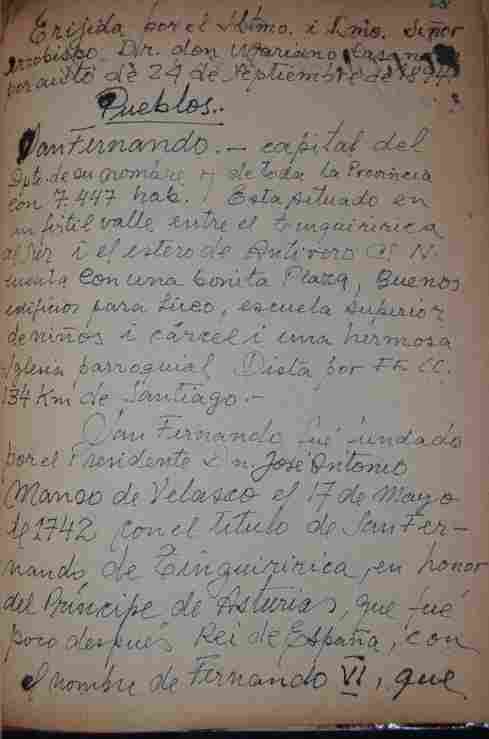 Erijida por el Iltmo. i Rmo. Señor
Arzobispo Dr. don Mariano Casanova
por auto de 24 de Septiembre de 189
Pueblos.
San Fernando. — capital del
Dpto. de su nombre y de toda la Provincia
con 7.447 hab. Esta situado en
un fertil valle entre el Tinguiririca
al Sur i el estero de Antivero al N.
cuenta con una bonita Plaza, Buenos
edificios para Liceo, escuela superior
de niños i cárcel i una hermosa
Iglesia parroquial Dista por FF. CC.
134 Km de Santiago. —
San Fernando fué fundado
por el Presidente Dn. José Antonio
Manso de Velasco el 17 de Mayo
de 1742 con el título de San Fer-
nando de Tinguiririca, en honor
del Príncipe de Asturias, que fué
poco después Rei de España, con
el nombre de Fernando VI, que